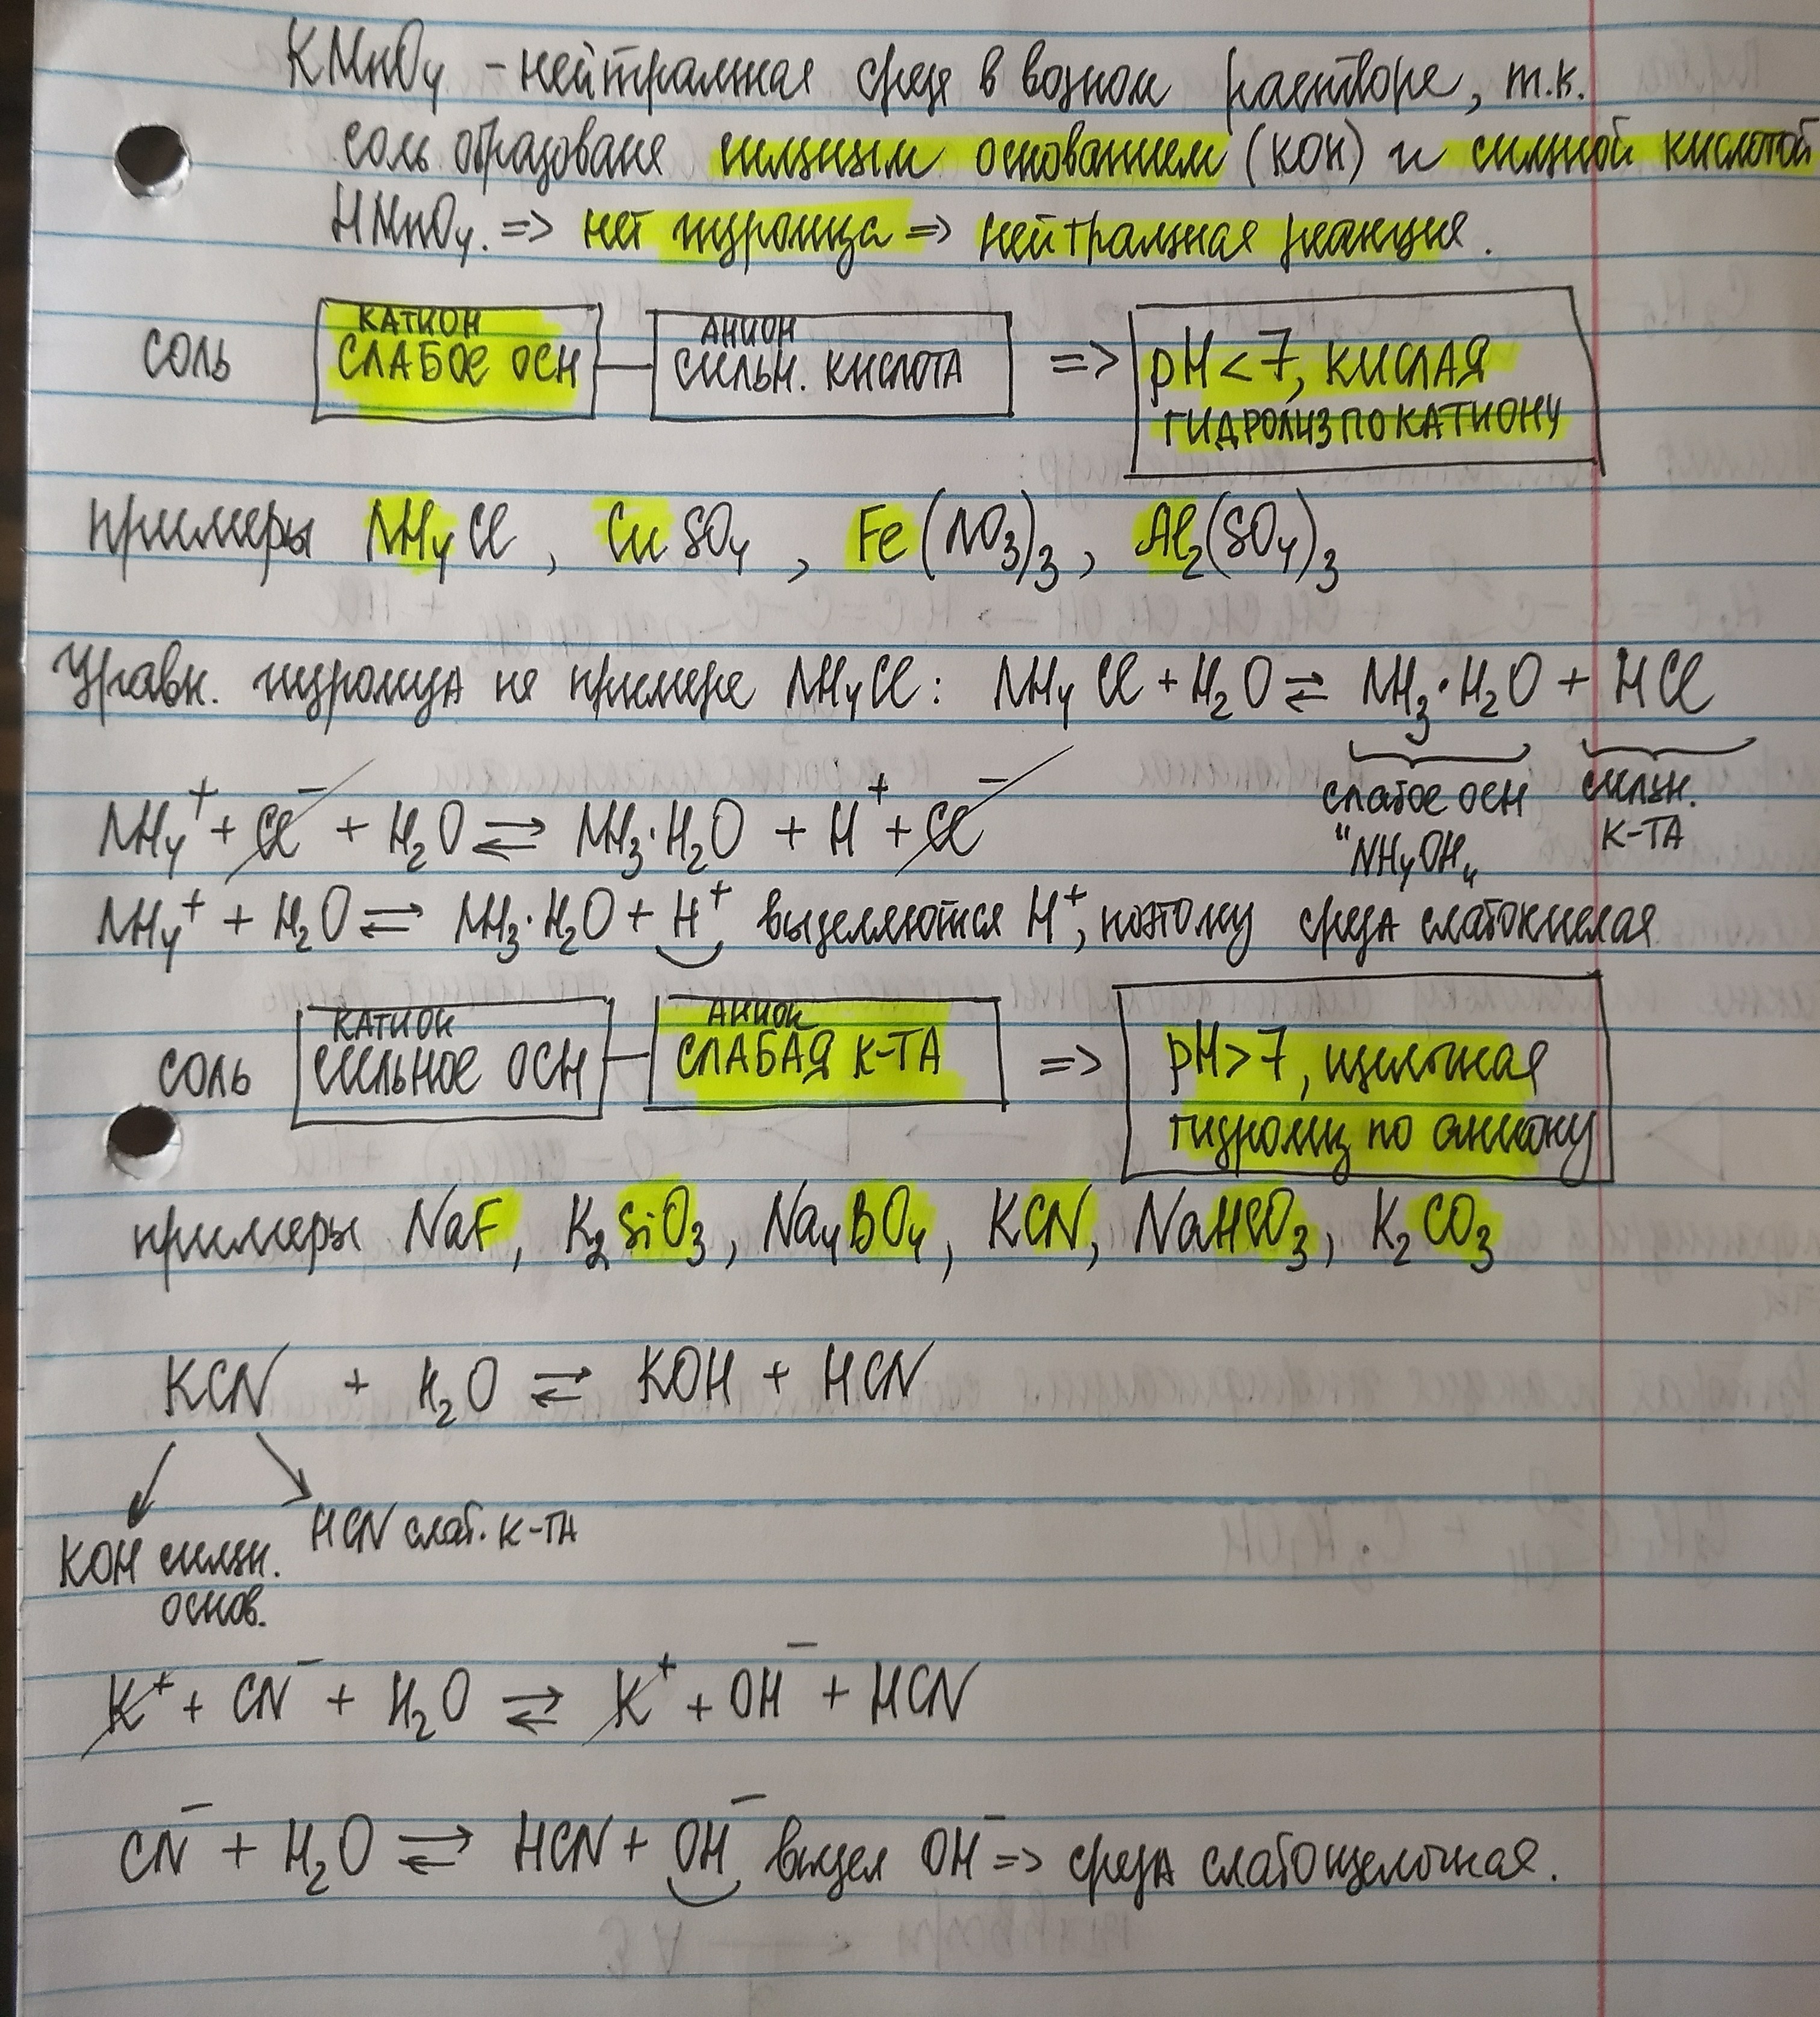 KMnO₄ – нейтральная среда в водном растворе, т.к.
соль образована сильным основанием (KOH) и сильной кислотой
HMnO₄. => нет гидролиза => нейтральная реакция.
СОЛЬ КАТИОН СЛАБОЕ ОСН — АНИОН СИЛЬН. КИСЛОТА => pH < 7, КИСЛАЯ
ГИДРОЛИЗ ПО КАТИОНУ
примеры NH₄Cl, CuSO₄, Fe(NO₃)₃, Al₂(SO₄)₃
Уравн. гидролиза на примере NH₄Cl: NH₄Cl + H₂O ⇌ NH₃·H₂O + HCl
слабое осн "NH₄OH" сильн. к-та
NH₄⁺ + Cl⁻ + H₂O ⇌ NH₃·H₂O + H⁺ + Cl⁻
NH₄⁺ + H₂O ⇌ NH₃·H₂O + H⁺ выделяются H⁺, поэтому среда слабокислая
СОЛЬ КАТИОН СИЛЬНОЕ ОСН — АНИОН СЛАБАЯ К-ТА => pH > 7, щелочная
гидролиз по аниону
примеры NaF, K₂SiO₃, Na₄BO₄, KCN, NaHCO₃, K₂CO₃
KCN + H₂O ⇌ KOH + HCN
HCN слаб. к-та
KOH сильн.
основ.
K⁺ + CN⁻ + H₂O ⇌ K⁺ + OH⁻ + HCN
CN⁻ + H₂O ⇌ HCN + OH⁻ выдел OH⁻ => среда слабощелочная.